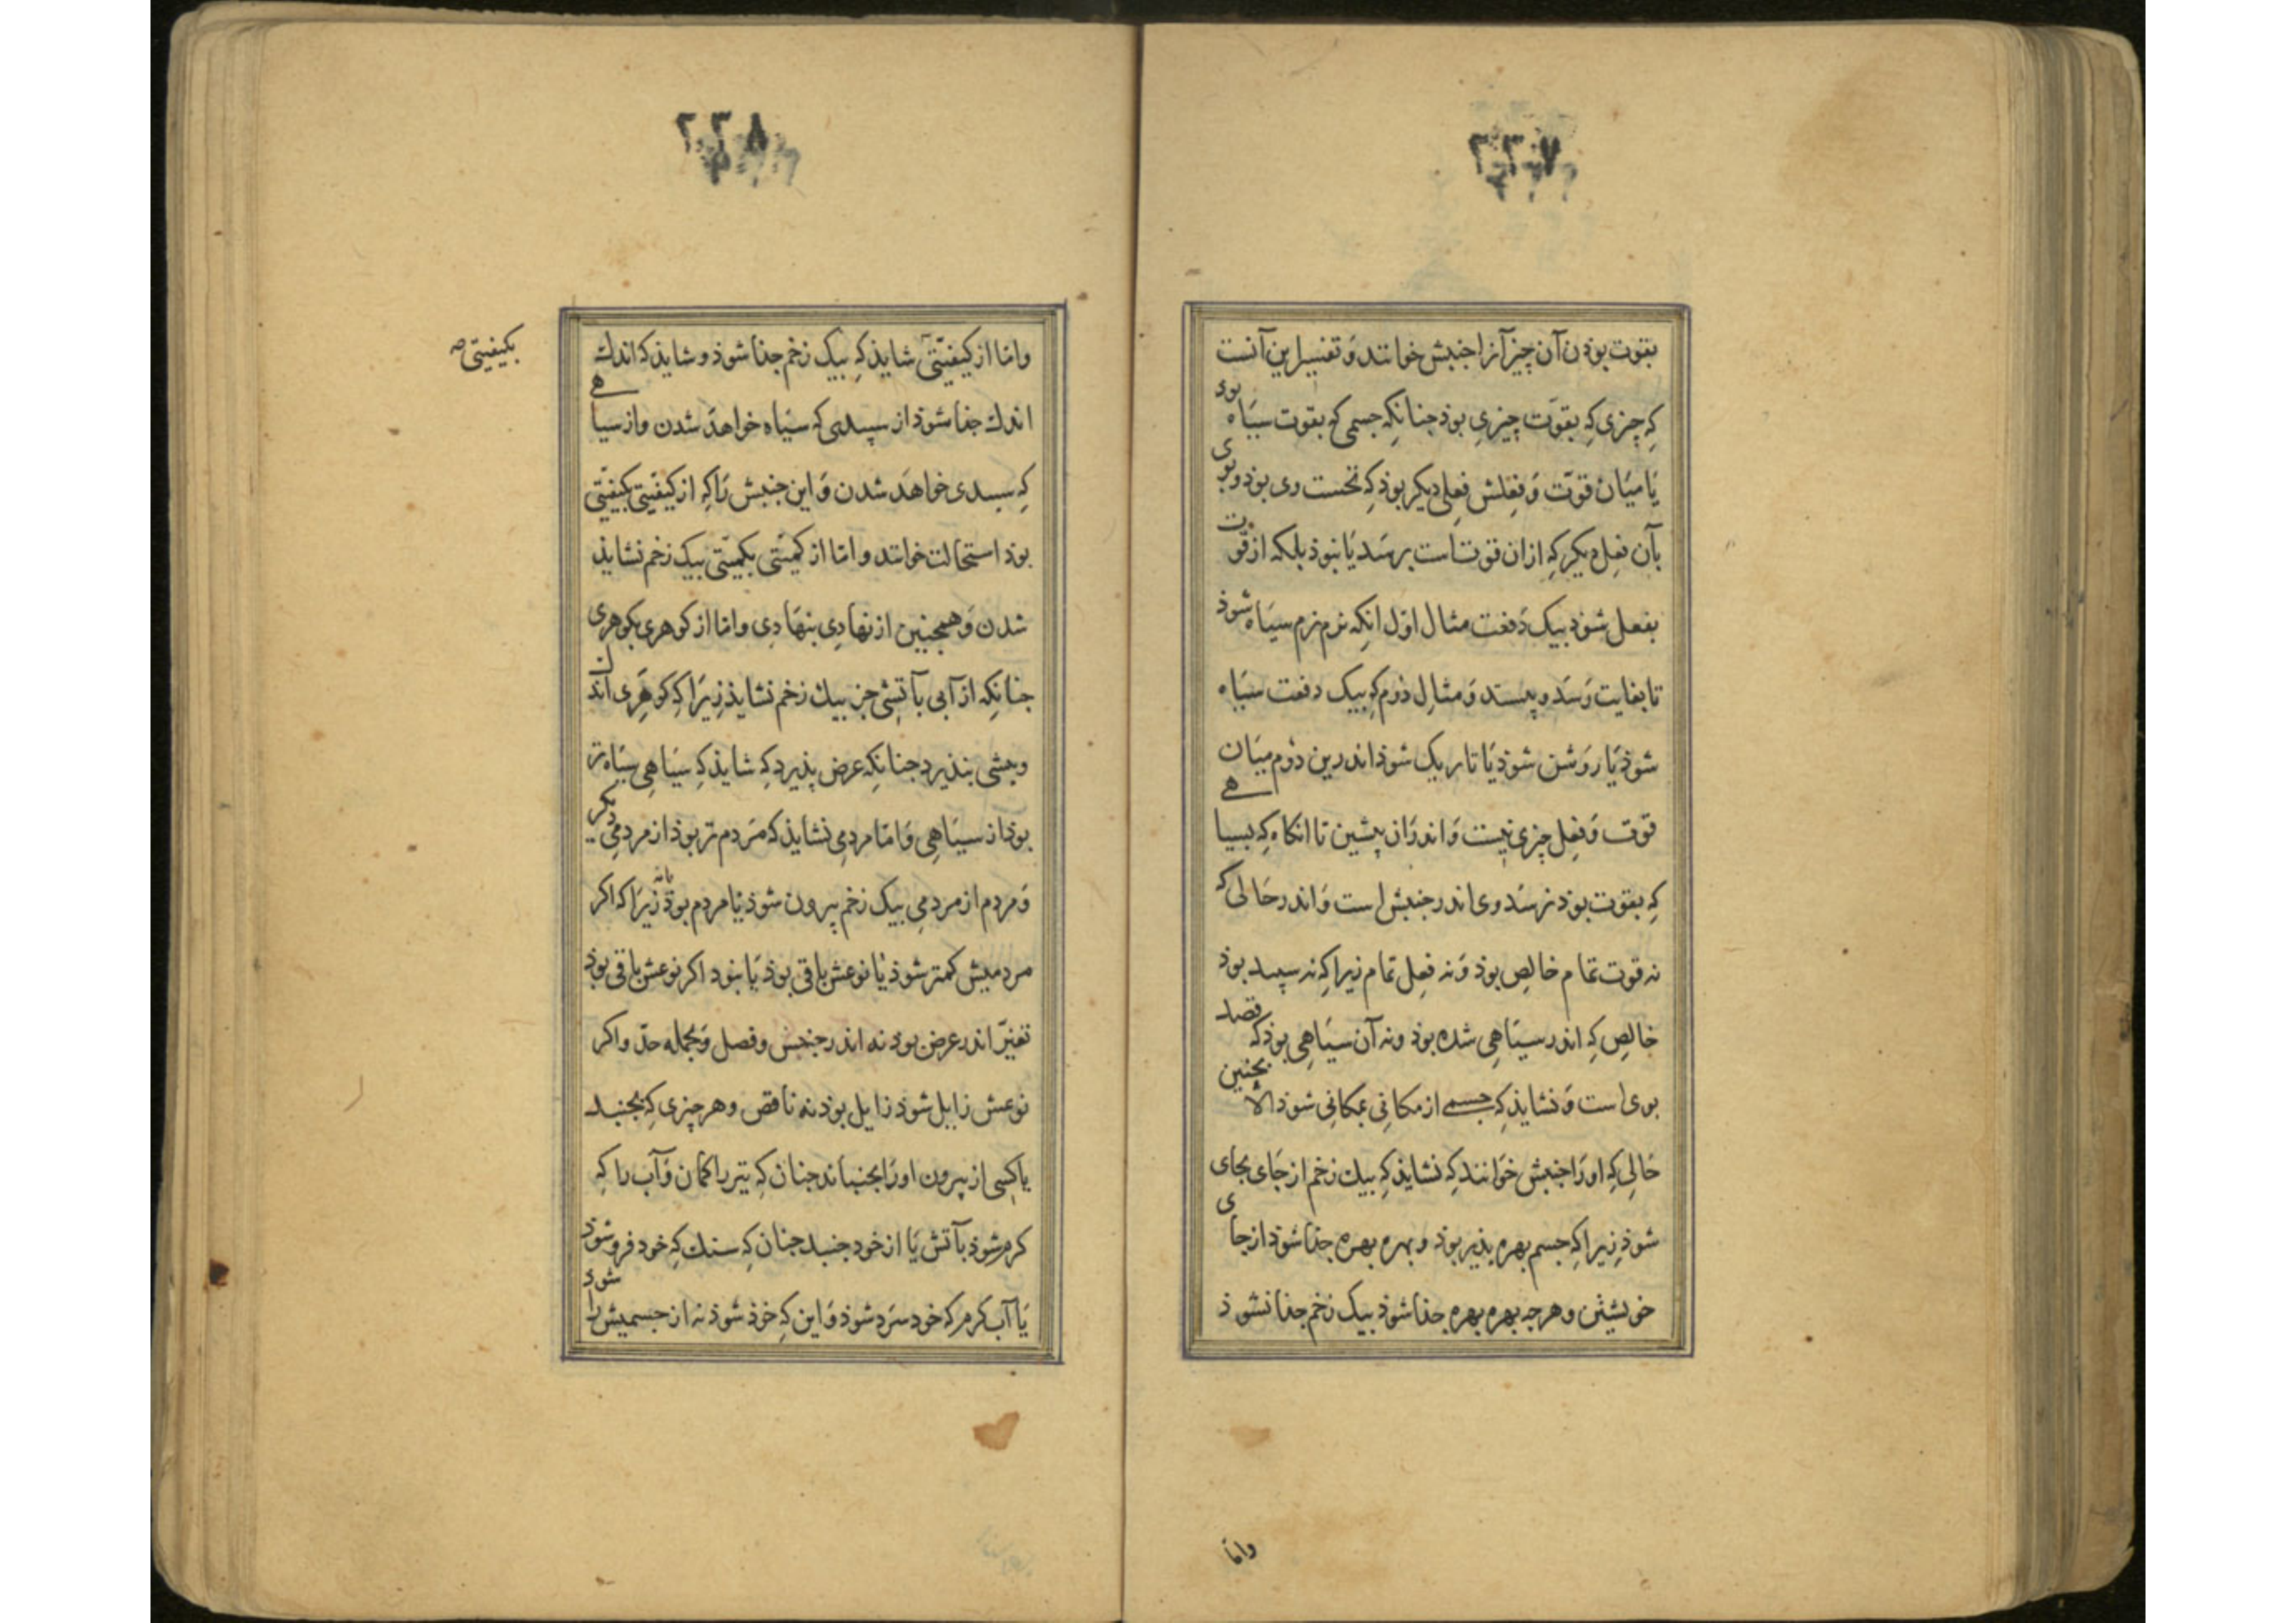 ۲۳۷
بقوت بوذن آن چیز آنرا جنبش خوانند وَ تفسیر این آنست
کِه چیزی کِه بقوّت چیزی بوذ جنانکِه جسمی کو بقوت سیَاه بوی
یَا میَان قوّت وَ فِعلش فِعلی دیکر بوذ کِه نخست وی بوذ و بوی
بآن فِعل دیکر کِه ازان قوتست برسَد یَا نبوذ بلکه از قوت
بفعل شوذ بیک دَفعت مثال اوّل انکِه نرم نرم سیَاه شوذ
تا بغایت رَسَد و بیستد وَ مثالِ ذوم کِه بیک دفعت سیَاه
شوذ یَا رَوشن شوذ یَا تاریک شوذ اندرین ذوم میَان
قوّت وَ فِعل چیزی نیست وَ اندرَان پیشین تا انکاه کِه بسیاهے
کِه بقوت بوذ نرسَد وی اندر جنبش است وَ اندر حَالی کِه
نه قوت تمام خالِص بوذ وَ نه فِعل تمام زیرا کِه نه سپید بوذ
خالِص کِه اندر سیَاهِی شده بوذ ونه آن سیَاهِی بوذ کِه قصد
بوی است وَ نشایذ کِه جسمے از مکانِی بمکانِی شوذ الّا بجنین
حَالِی کِه اورَا جنبش خوَانند کِه نشایذ کِه بیك زخم از جَای بجای
شوذ زیرا کِه جسم بهره پذیر بوذ و بهره بهره جذا شوذ از جای
خویشتن و هرچه بهره بهره جذا شوذ بیک زخم جذا نشوذ
وامّا
۲۳۸
وامّا از کیفیّتی شایذ کِه بیک زخم جذا شوذ و شایذ که اندك
بکیفیتی صه
اندك جذا شوذ از سپیدی کِه سیَاه خواهَد شدن و از سیاهے
کِه سپیدی خواهَد شدن وَ این جنبش رَا کِه از کیفیّتی بکیفیّتی
بوذ استحالت خوانند و امّا از کمیّتی بکمیّتی بیک زخم نشایذ
شدن وَ همچنین از نهادِی بنهَادِی وامّا از کوهری بکوهری
جنانِکه از آبی بآتشی جز بیك زخم نشایذ زیرَا کِه کوهَرِی اندکی
وبیشی نپذیرد جنانکِه عرض پذیرد کِه شایذ کِه سیَاهِی سیَاه‌تر
بوذ از سیَاهِی وَ امّا مردمِی نشایذ کِه مَردم‌تر بوذ از مردمِی دیکر
وَ مردم از مردمِی بیک زخم بیرون شوذ یَا مردم بوذ یا نه زیرَا که اکر
مردمیش کمتر شوذ یَا نوعش باقی بوذ یَا نبوذ اکر نوعش باقی بوذ
تغیّر اندر عرض بوذ نه اندر جنس و فصل وَ بجمله حدّ و اکر
نوعش زایل شوذ زایل بوذ نه ناقص و هر چیزی کِه بجنبد
یا کِسی از بیرون اورَا بجنباند جنان کِه تیر را کمان وَ آب را کِه
کرم شوذ بآتش یَا از خود جنبد جنان کِه سنك کِه خود فرو شوذ
یَا آب کرم که خود سَرد شوذ وَ این کِه خوذ شوذ نه از جسمیش را شوذ